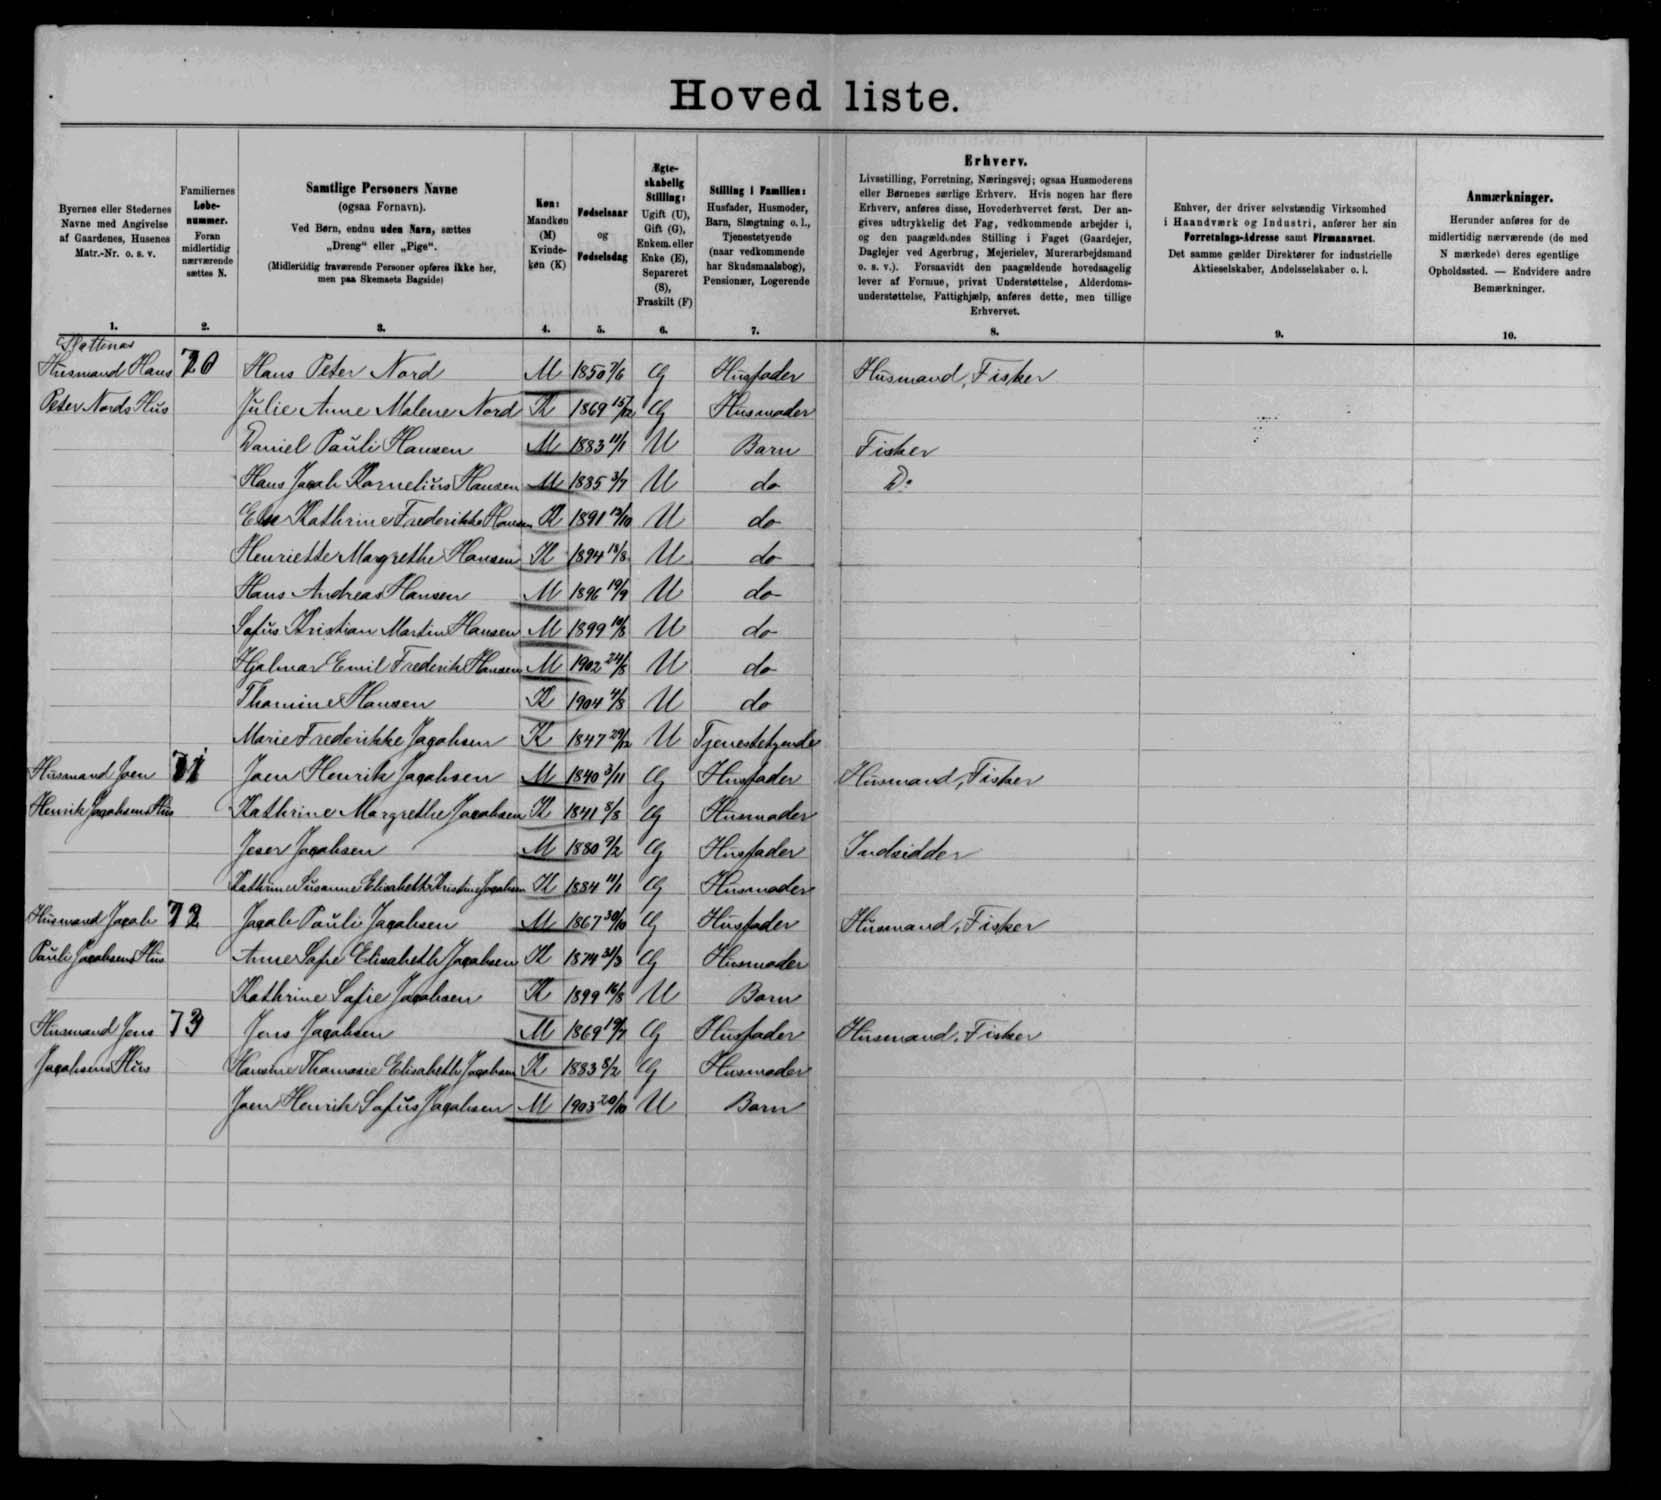 Hoved liste.
Byernes eller Stedernes Navne med Angivelse af Gaardenes, Husenes Matr.-Nr. o. s. v.
Familiernes Løbe-nummer. Foran midlertidig nærværende sættes N.
Samtlige Personers Navne (ogsaa Fornavn). Ved Børn, endnu uden Navn, sættes „Dreng" eller „Pige". (Midlertidig fraværende Personer opføres ikke her, men paa Skemaets Bagside)
Køn: Mandkøn (M) Kvinde-køn (K)
Fødselsaar og Fødselsdag
Ægte-skabelig Stilling: Ugift (U), Gift (G), Enkem. eller Enke (E), Separeret (S), Fraskilt (F)
Stilling i Familien: Husfader, Husmoder, Barn, Slægtning o. l., Tjenestetyende (naar vedkommende har Skudsmaalsbog), Pensionær, Logerende
Erhverv. Livsstilling, Forretning, Næringsvej; ogsaa Husmoderens eller Børnenes særlige Erhverv. Hvis nogen har flere Erhverv, anføres disse, Hovederhvervet først. Der an-gives udtrykkelig det Fag, vedkommende arbejder i, og den paagældendes Stilling i Faget (Gaardejer, Daglejer ved Agerbrug, Mejerielev, Murerarbejdsmand o. s. v.). Forsaavidt den paagældende hovedsagelig lever af Formue, privat Understøttelse, Alderdoms-understøttelse, Fattighjælp, anføres dette, men tillige Erhvervet.
Enhver, der driver selvstændig Virksomhed i Haandværk og Industri, anfører her sin Forretnings-Adresse samt Firmanavnet. Det samme gælder Direktører for industrielle Aktieselskaber, Andelsselskaber o. l.
Anmærkninger. Herunder anføres for de midlertidig nærværende (de med N mærkede) deres egentlige Opholdssted. — Endvidere andre Bemærkninger.
1. 2. 3. 4. 5. 6. 7. 8. 9. 10.
Husmand Hans 70 Hans Peter Nord M 1850 7/6 G Husfader Husmand, Fisker
Peter Nords Hus Julie Anne Malene Nord K 1869 15/12 G Husmoder
Daniel Pauli Hansen M 1883 11/1 U Barn Fisker
Hans Jacob Kornelius Hansen M 1885 3/7 U do Do
Else Kathrine Frederikke Hansen K 1891 12/10 U do
Henriette Margrethe Hansen K 1894 18/8 U do
Hans Andreas Hansen M 1896 19/9 U do
Sofus Kristian Martin Hansen M 1899 10/8 U do
Hjalmar Emil Frederik Hansen M 1902 24/8 U do
Thomine Hansen K 1904 4/8 U do
Marie Frederikke Jacobsen K 1847 29/12 U Tjenestetyende
Husmand Joen 71 Joen Henrik Jacobsen M 1840 3/11 G Husfader Husmand, Fisker
Henrik Jacobsens Hus Kathrine Margrethe Jacobsen K 1841 8/8 G Husmoder
Jeser Jacobsen M 1880 9/2 G Husfader Indsidder
Kathrine Susanne Elisabeth Kristine Jacobsen K 1884 11/1 G Husmoder
Husmand Jacob 72 Jacob Pauli Jacobsen M 1867 30/10 G Husfader Husmand, Fisker
Pauli Jacobsens Hus Anne Sofie Elisabeth Jacobsen K 1874 31/3 G Husmoder
Kathrine Sofie Jacobsen K 1899 16/8 U Barn
Husmand Jens 73 Jens Jacobsen M 1869 19/7 G Husfader Husmand, Fisker
Jacobsens Hus Hansine Thomasie Elisabeth Jacobsen K 1883 8/2 G Husmoder
Joen Henrik Sofus Jacobsen M 1903 20/10 U Barn